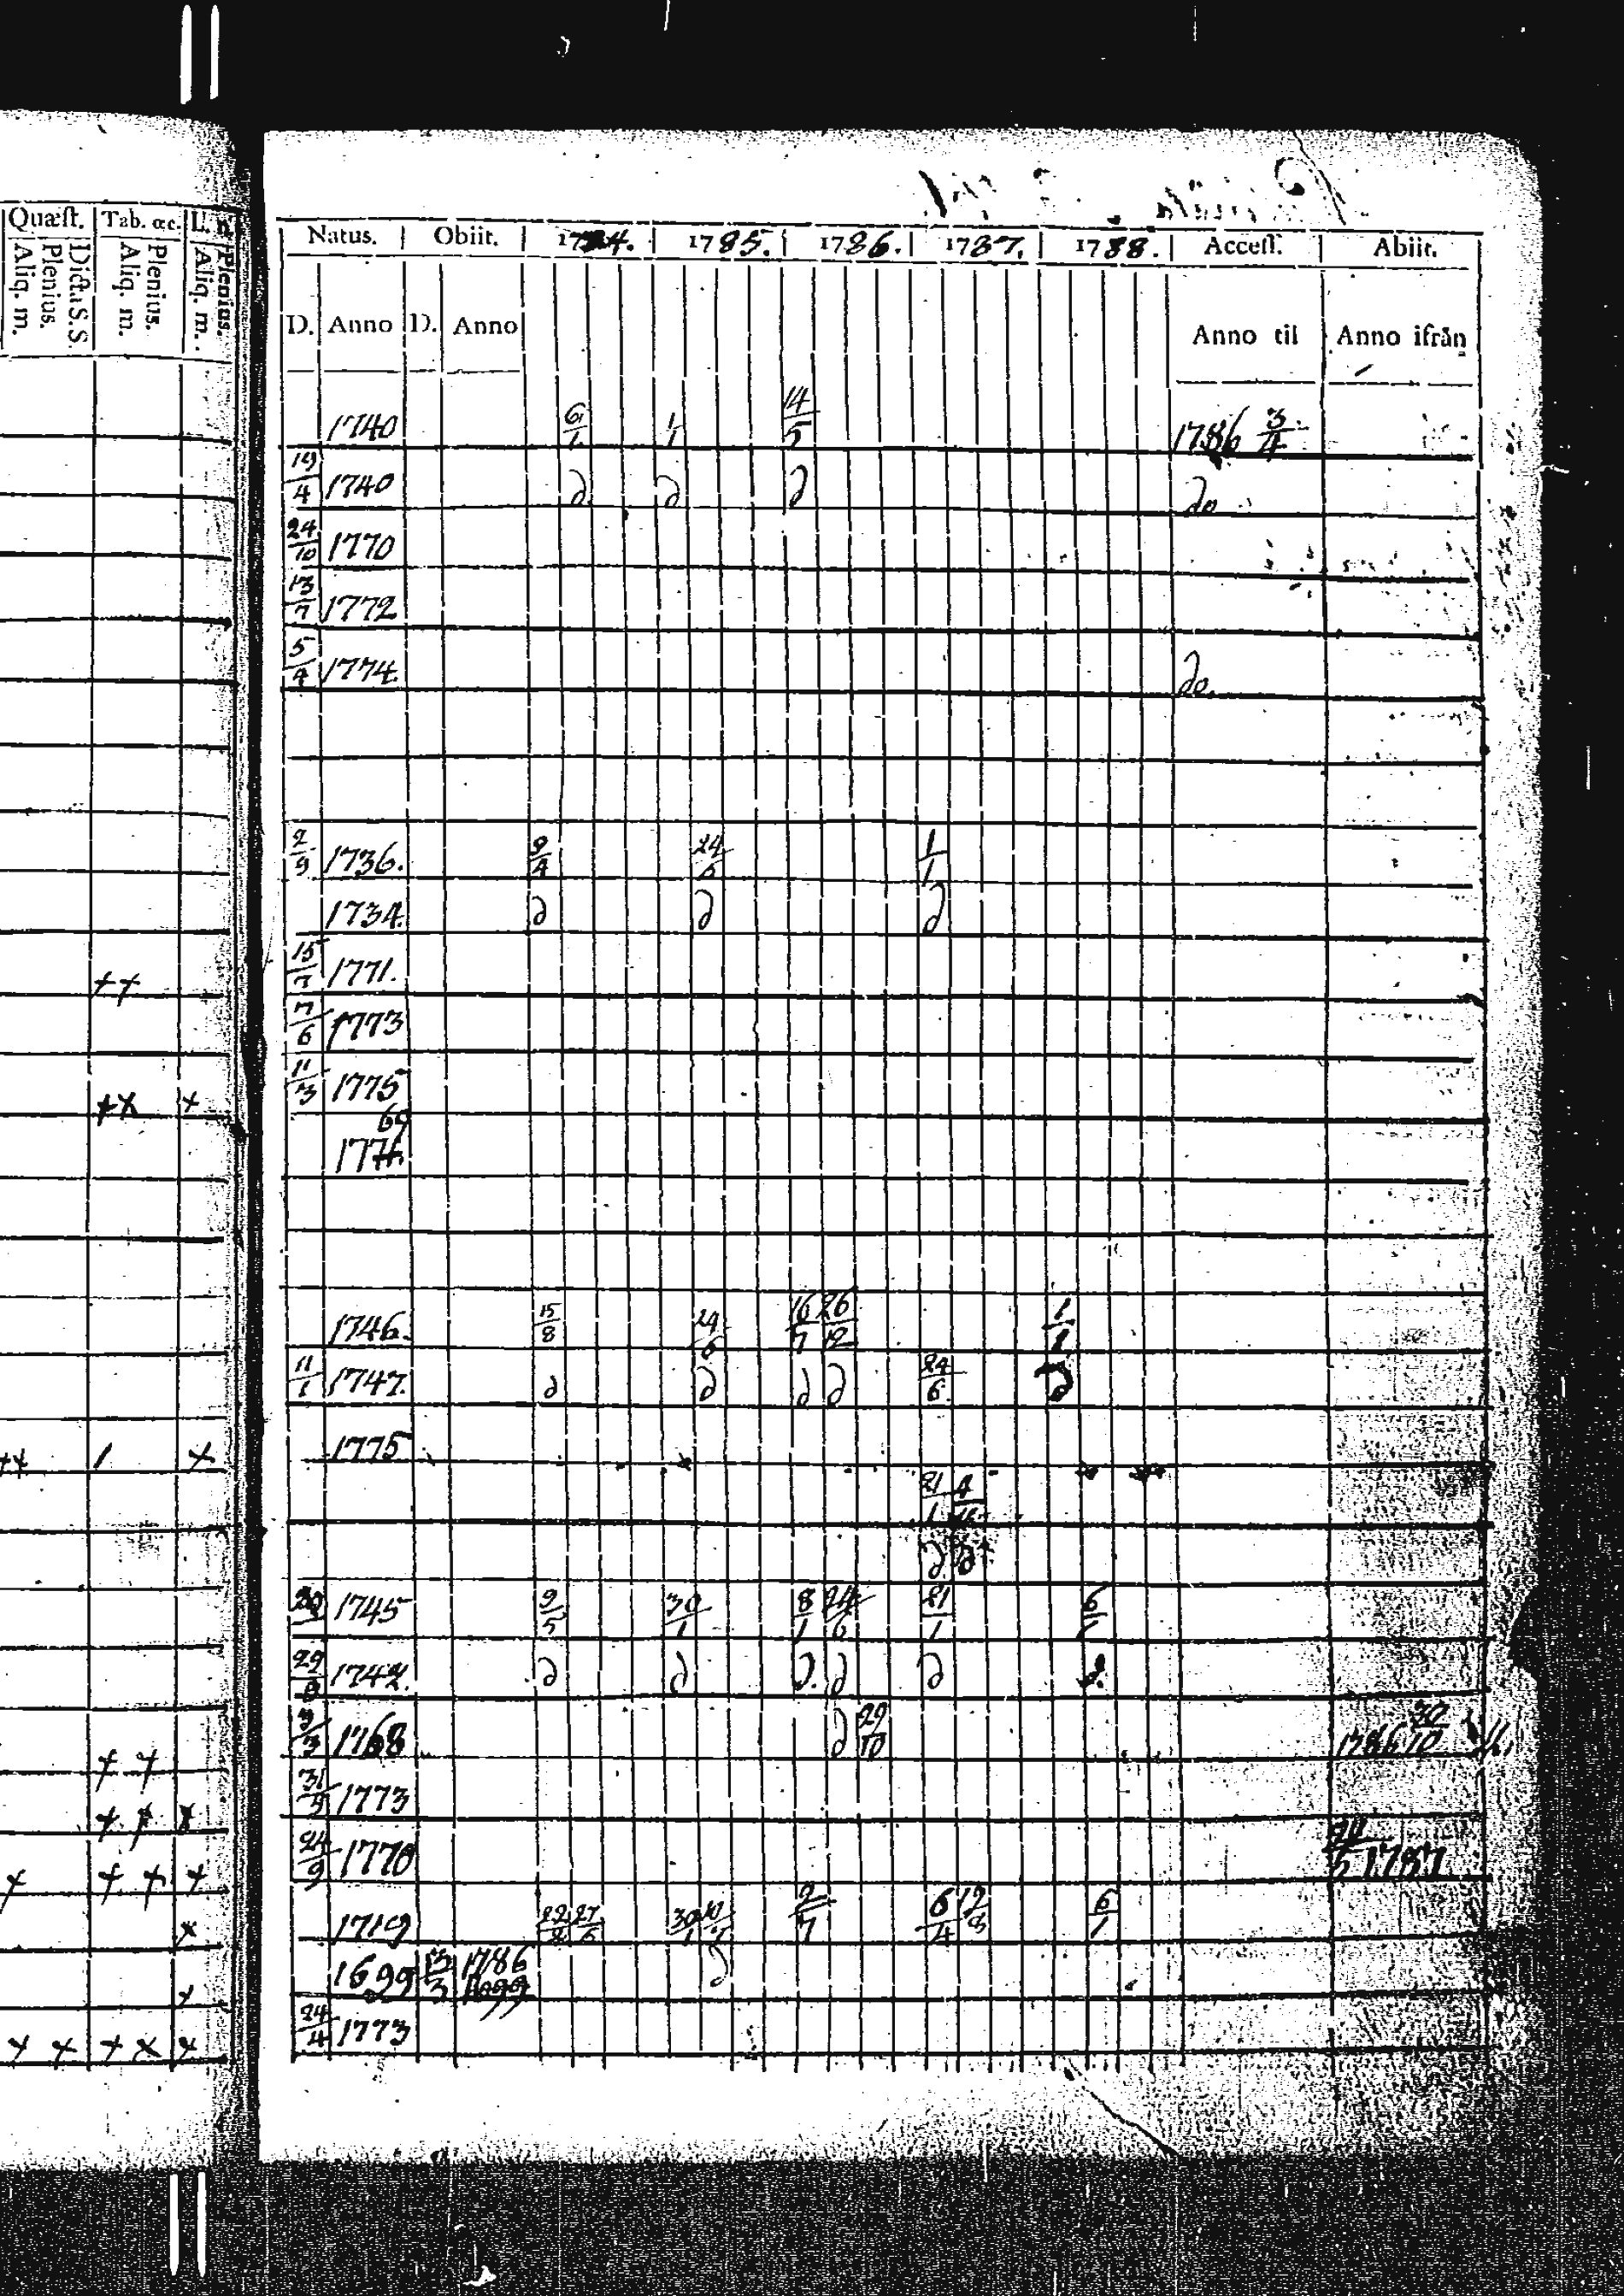 Quæſt. | Tab. œc. | L. n.
Dicta S. S. Plenius. Aliq. m. | Plenius. Aliq. m. | Plenius. Aliq. m.
Natus. | Obiit. | 1784. | 1785. | 1786. | 1787. | 1788. | Acceſſ. | Abiit.
D. | Anno | D. | Anno | Anno til | Anno ifrån
1740 6/1 1/1 14/5 1786 3/4
19/4 1740 d d d do
24/10 1770
13/7 1772
5/4 1774. do.
2/9 1736. 9/4 24/6 1/1
1734. d d d
++ 15/7 1771.
7/6 1773
++ + 11/3 1775
69
1774
1746. 15/8 24/6 16/7 26/12 1/1
11/1 1747. d d d d 24/6 d
++ / + 1775
21/1
d d
1745 9/5 30/1 8/1 24/6 21/1 6/1
1742. d d d. d d d.
1768 d 29/10 1786 30/10
+ +
31/5 1773
+ + +
24/9 1770 1787
+ + + +
1719 22/8 27/6 30/1 2/7 6/4 12/8 6/1
+
1699 1786 d
+
24/4 1773
+ + + + +